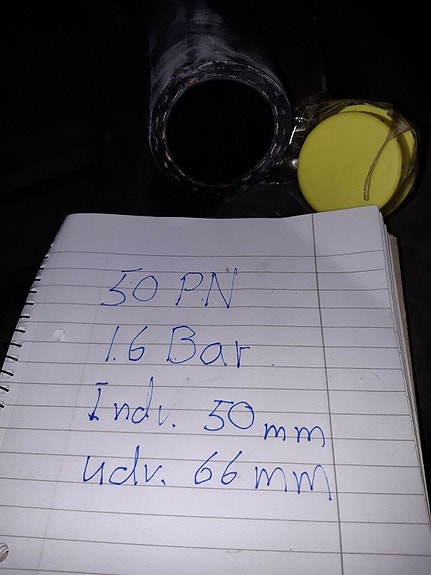 50 PN
1.6 Bar
Indv. 50 mm
udv. 66 mm